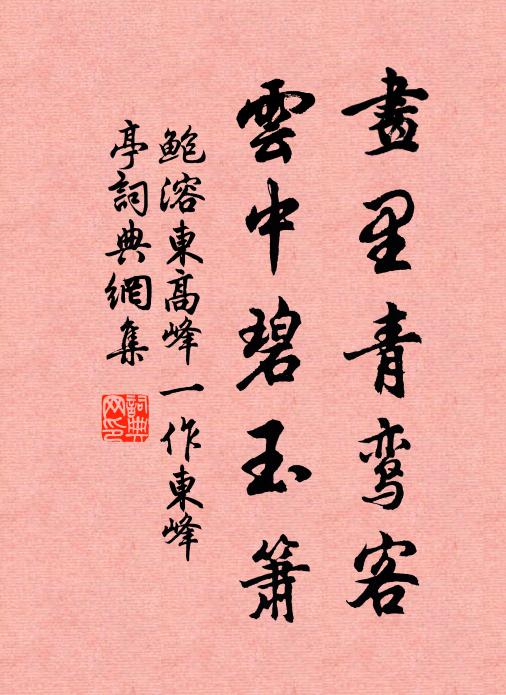 畫里青鸾客
雲中碧玉簫
鮑溶東高峰一作東峰
亭詞典網集
詞典網印